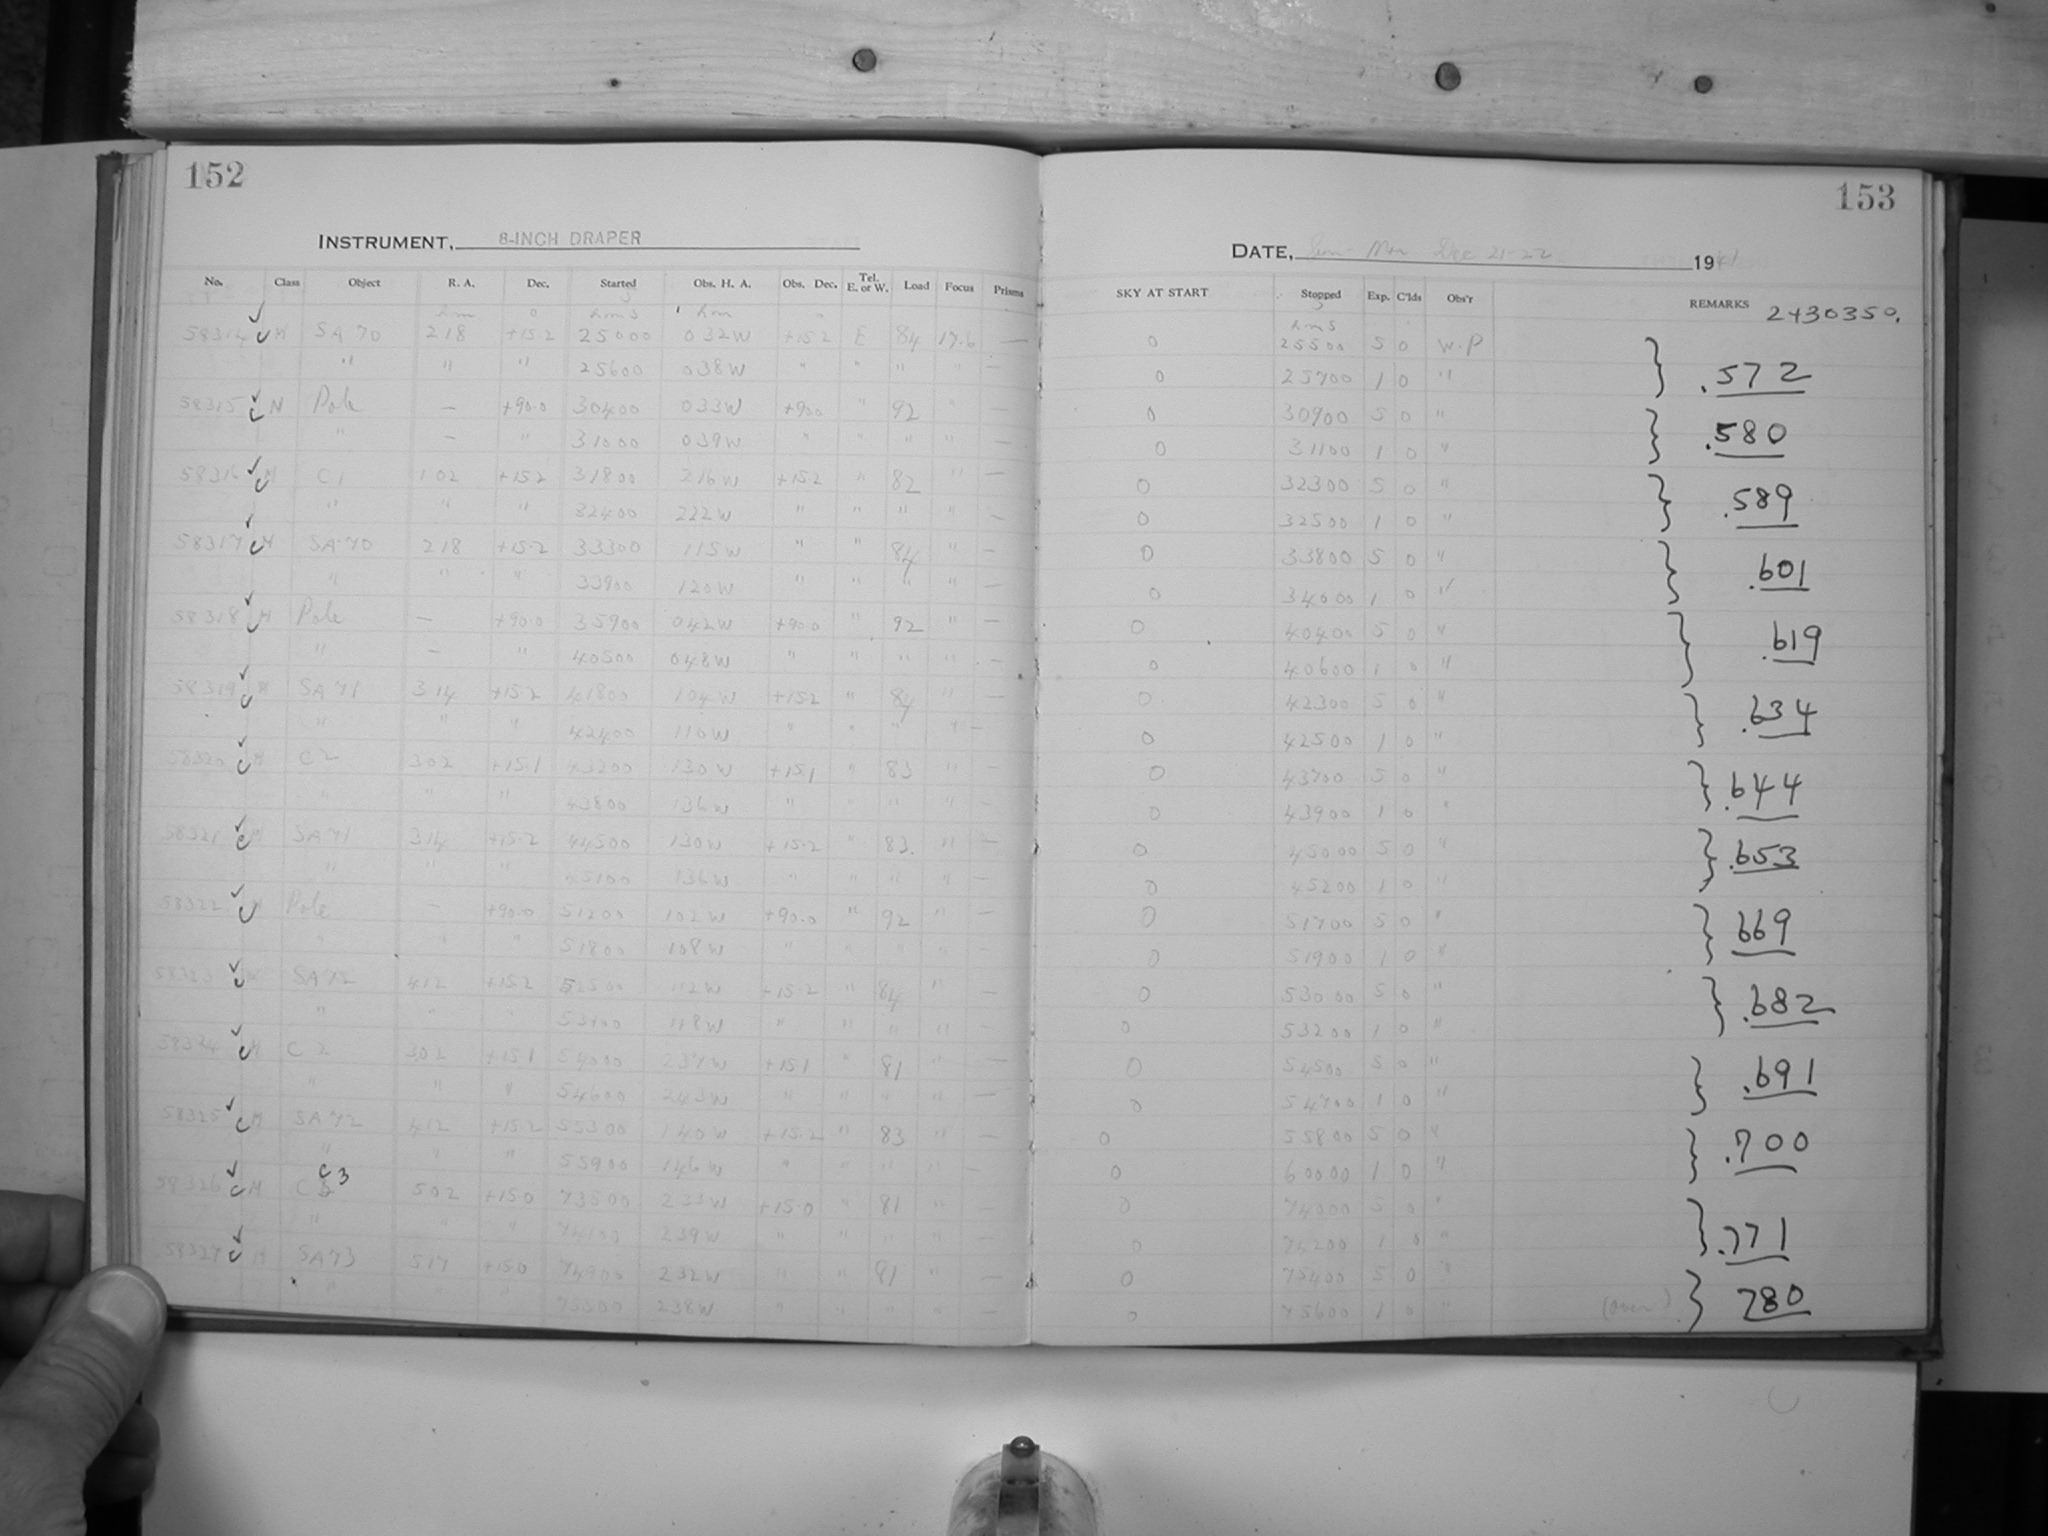 152
153
INSTRUMENT, 8-INCH DRAPER
DATE, Sun-Mon Dec 21-22 1941
No. Class Object R. A. Dec. Started Obs. H. A. Obs. Dec. Tel. E. or W. Load Focus Prisms SKY AT START Stopped Exp. C'lds Obs'r REMARKS 2430350.
h m ° h m s h m ° h m s
58314 M SA 70 2 18 +15.2 2 50 00 0 32 W +15.2 E 84 17.6 — 0 2 55 00 5 0 W.P } .572
" " " 2 56 00 0 38 W " " " " — 0 2 57 00 1 0 "
58315 N Pole — +90.0 3 04 00 0 33 W +90.0 " 92 " — 0 3 09 00 5 0 " } .580
" — " 3 10 00 0 39 W " " " " — 0 3 11 00 1 0 "
58316 M C 1 1 02 +15.2 3 18 00 2 16 W +15.2 " 82 " — 0 3 23 00 5 0 " } .589
" " " 3 24 00 2 22 W " " " " — 0 3 25 00 1 0 "
58317 M SA 70 2 18 +15.2 3 33 00 1 15 W " " 84 " — 0 3 38 00 5 0 " } .601
" " " 3 39 00 1 20 W " " " " — 0 3 40 00 1 0 "
58318 M Pole — +90.0 3 59 00 0 42 W +90.0 " 92 " — 0 4 04 00 5 0 " } .619
" — " 4 05 00 0 48 W " " " " — 0 4 06 00 1 0 "
58319 M SA 71 3 14 +15.2 4 18 00 1 04 W +15.2 " 84 " — 0 4 23 00 5 0 " } .634
" " " 4 24 00 1 10 W " " " " — 0 4 25 00 1 0 "
58320 M C 2 3 02 +15.1 4 32 00 1 30 W +15.1 " 83 " — 0 4 37 00 5 0 " } .644
" " " 4 38 00 1 36 W " " " " — 0 4 39 00 1 0 "
58321 M SA 71 3 14 +15.2 4 45 00 1 30 W +15.2 " 83 " — 0 4 50 00 5 0 " } .653
" " " 4 51 00 1 36 W " " " " — 0 4 52 00 1 0 "
58322 M Pole — +90.0 5 12 00 1 02 W +90.0 " 92 " — 0 5 17 00 5 0 " } .669
" " " 5 18 00 1 08 W " " " " — 0 5 19 00 1 0 "
58323 SA 72 4 12 +15.2 5 25 00 1 12 W +15.2 " 84 " — 0 5 30 00 5 0 " } .682
" " " 5 31 00 1 18 W " " " " — 0 5 32 00 1 0 "
58324 M C 2 3 02 +15.1 5 40 00 2 37 W +15.1 " 81 " — 0 5 45 00 5 0 " } .691
" " " 5 46 00 2 43 W " " " " — 0 5 47 00 1 0 "
58325 M SA 72 4 12 +15.2 5 53 00 1 40 W +15.2 " 83 " — 0 5 58 00 5 0 " } .700
" " " 5 59 00 1 46 W " " " " — 0 6 00 00 1 0 "
58326 M C 3 5 02 +15.0 7 35 00 2 33 W +15.0 " 81 " — 0 7 40 00 5 0 " } .771
" " " 7 41 00 2 39 W " " " " — 0 7 42 00 1 0 "
58327 M SA 73 5 17 +15.0 7 49 00 2 32 W " " 81 " — 0 7 54 00 5 0 " } 780
" " " 7 55 00 2 38 W " " " " — 0 7 56 00 1 0 " (over)